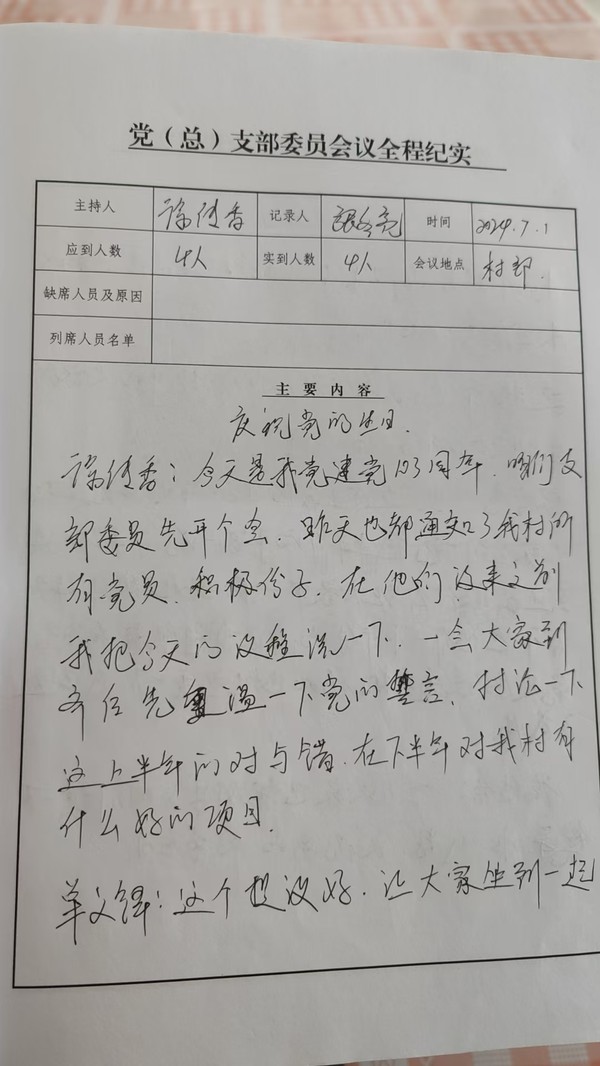 党（总）支部委员会议全程纪实
主持人 记录人 时间 2024.7.1
应到人数 4人 实到人数 4人 会议地点 村部.
缺席人员及原因
列席人员名单
主要内容
庆祝党的生日.
今天是我党建党103周年.咱们支
部委员先开个会.昨天也都通知了我村所
有党员.积极份子.在他们没来之前
我把今天的议程说一下.一会大家到
齐后先重温一下党的誓言.讨论一下
这上半年的对与错.在下半年对我村有
什么好的项目.
单文锋：这个提议好.让大家坐到一起